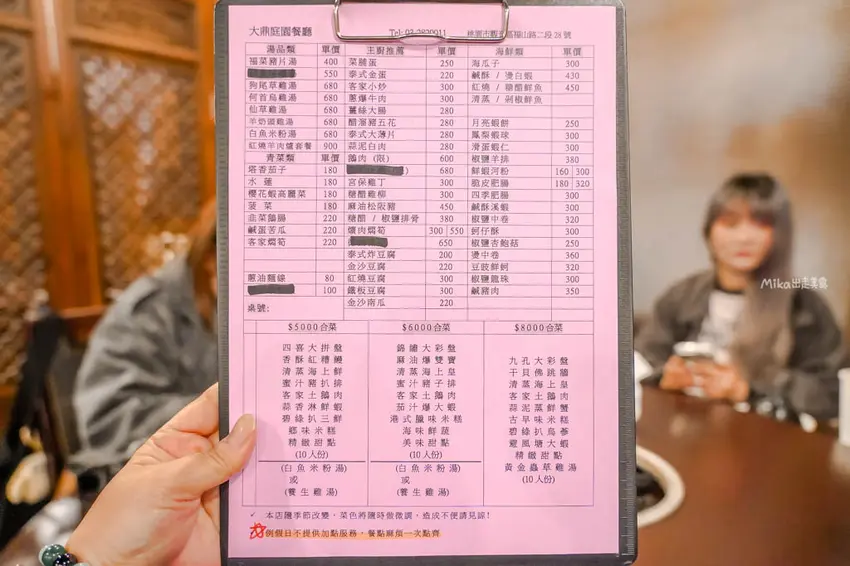 大鼎庭園餐廳 Tel: 03-3620911 桃園市八德區福山路二段28號
湯品類 單價 主廚推薦 單價 海鮮類 單價
福菜豬片湯 400 菜脯蛋 250 海瓜子 300
550 泰式金蛋 220 鹹酥 / 燙白蝦 430
狗尾草雞湯 680 客家小炒 300 紅燒 / 糖醋鮮魚 450
何首烏雞湯 680 蔥爆牛肉 300 清蒸 / 剁椒鮮魚
仙草雞湯 680 薑絲大腸 280
羊奶頭雞湯 680 醋溜豬五花 280 月亮蝦餅 250
白魚米粉湯 680 泰式大薄片 280 鳳梨蝦球 300
紅燒羊肉爐套餐 900 蒜泥白肉 280 滑蛋蝦仁 300
青菜類 單價 鵝肉 (限) 600 椒鹽羊排 380
塔香茄子 180 680 鮮蝦河粉 160 300
水蓮 180 宮保雞丁 300 脆皮肥腸 180 320
櫻花蝦高麗菜 180 糖醋雞柳 300 四季肥腸 300
菠菜 180 麻油松阪豬 450 鹹酥溪蝦 300
韭菜鵝腸 220 糖醋 / 椒鹽排骨 380 椒鹽中卷 320
鹹蛋苦瓜 220 爌肉燜筍 300 550 蚵仔酥 300
客家燜筍 220 650 椒鹽杏鮑菇 250
泰式炸豆腐 200 燙中卷 360
金沙豆腐 220 豆豉鮮蚵 320
蔥油麵線 80 紅燒豆腐 300 椒鹽龍珠 300
100 鐵板豆腐 300 鹹豬肉 350
桌號: 金沙南瓜 220
$5000合菜 $6000合菜 $8000合菜
四喜大拼盤 錦繡大彩盤
香酥紅糟鰻 麻油爆雙寶 九孔大彩盤
清蒸海上鮮 清蒸海上皇 干貝佛跳牆
蜜汁豬扒排 蜜汁豬子排 清蒸海上皇
客家土鵝肉 客家土鵝肉 客家土鵝肉
蒜香淋鮮蝦 茄汁爆大蝦 蒜泥蒸鮮蟹
碧綠扒三鮮 港式臘味米糕 古早味米糕
鄉味米糕 海味鮮蔬 碧綠扒烏蔘
精緻甜點 美味甜點 避風塘大蝦
(10人份) (10人份) 精緻甜點
(白魚米粉湯) (白魚米粉湯) 黃金蟲草雞湯
或 或 (10人份)
(養生雞湯) (養生雞湯)
✓ 本店隨季節改變，菜色將隨時做微調，造成不便請見諒!
例假日不提供加點服務，餐點麻煩一次點齊
Mika出走美食